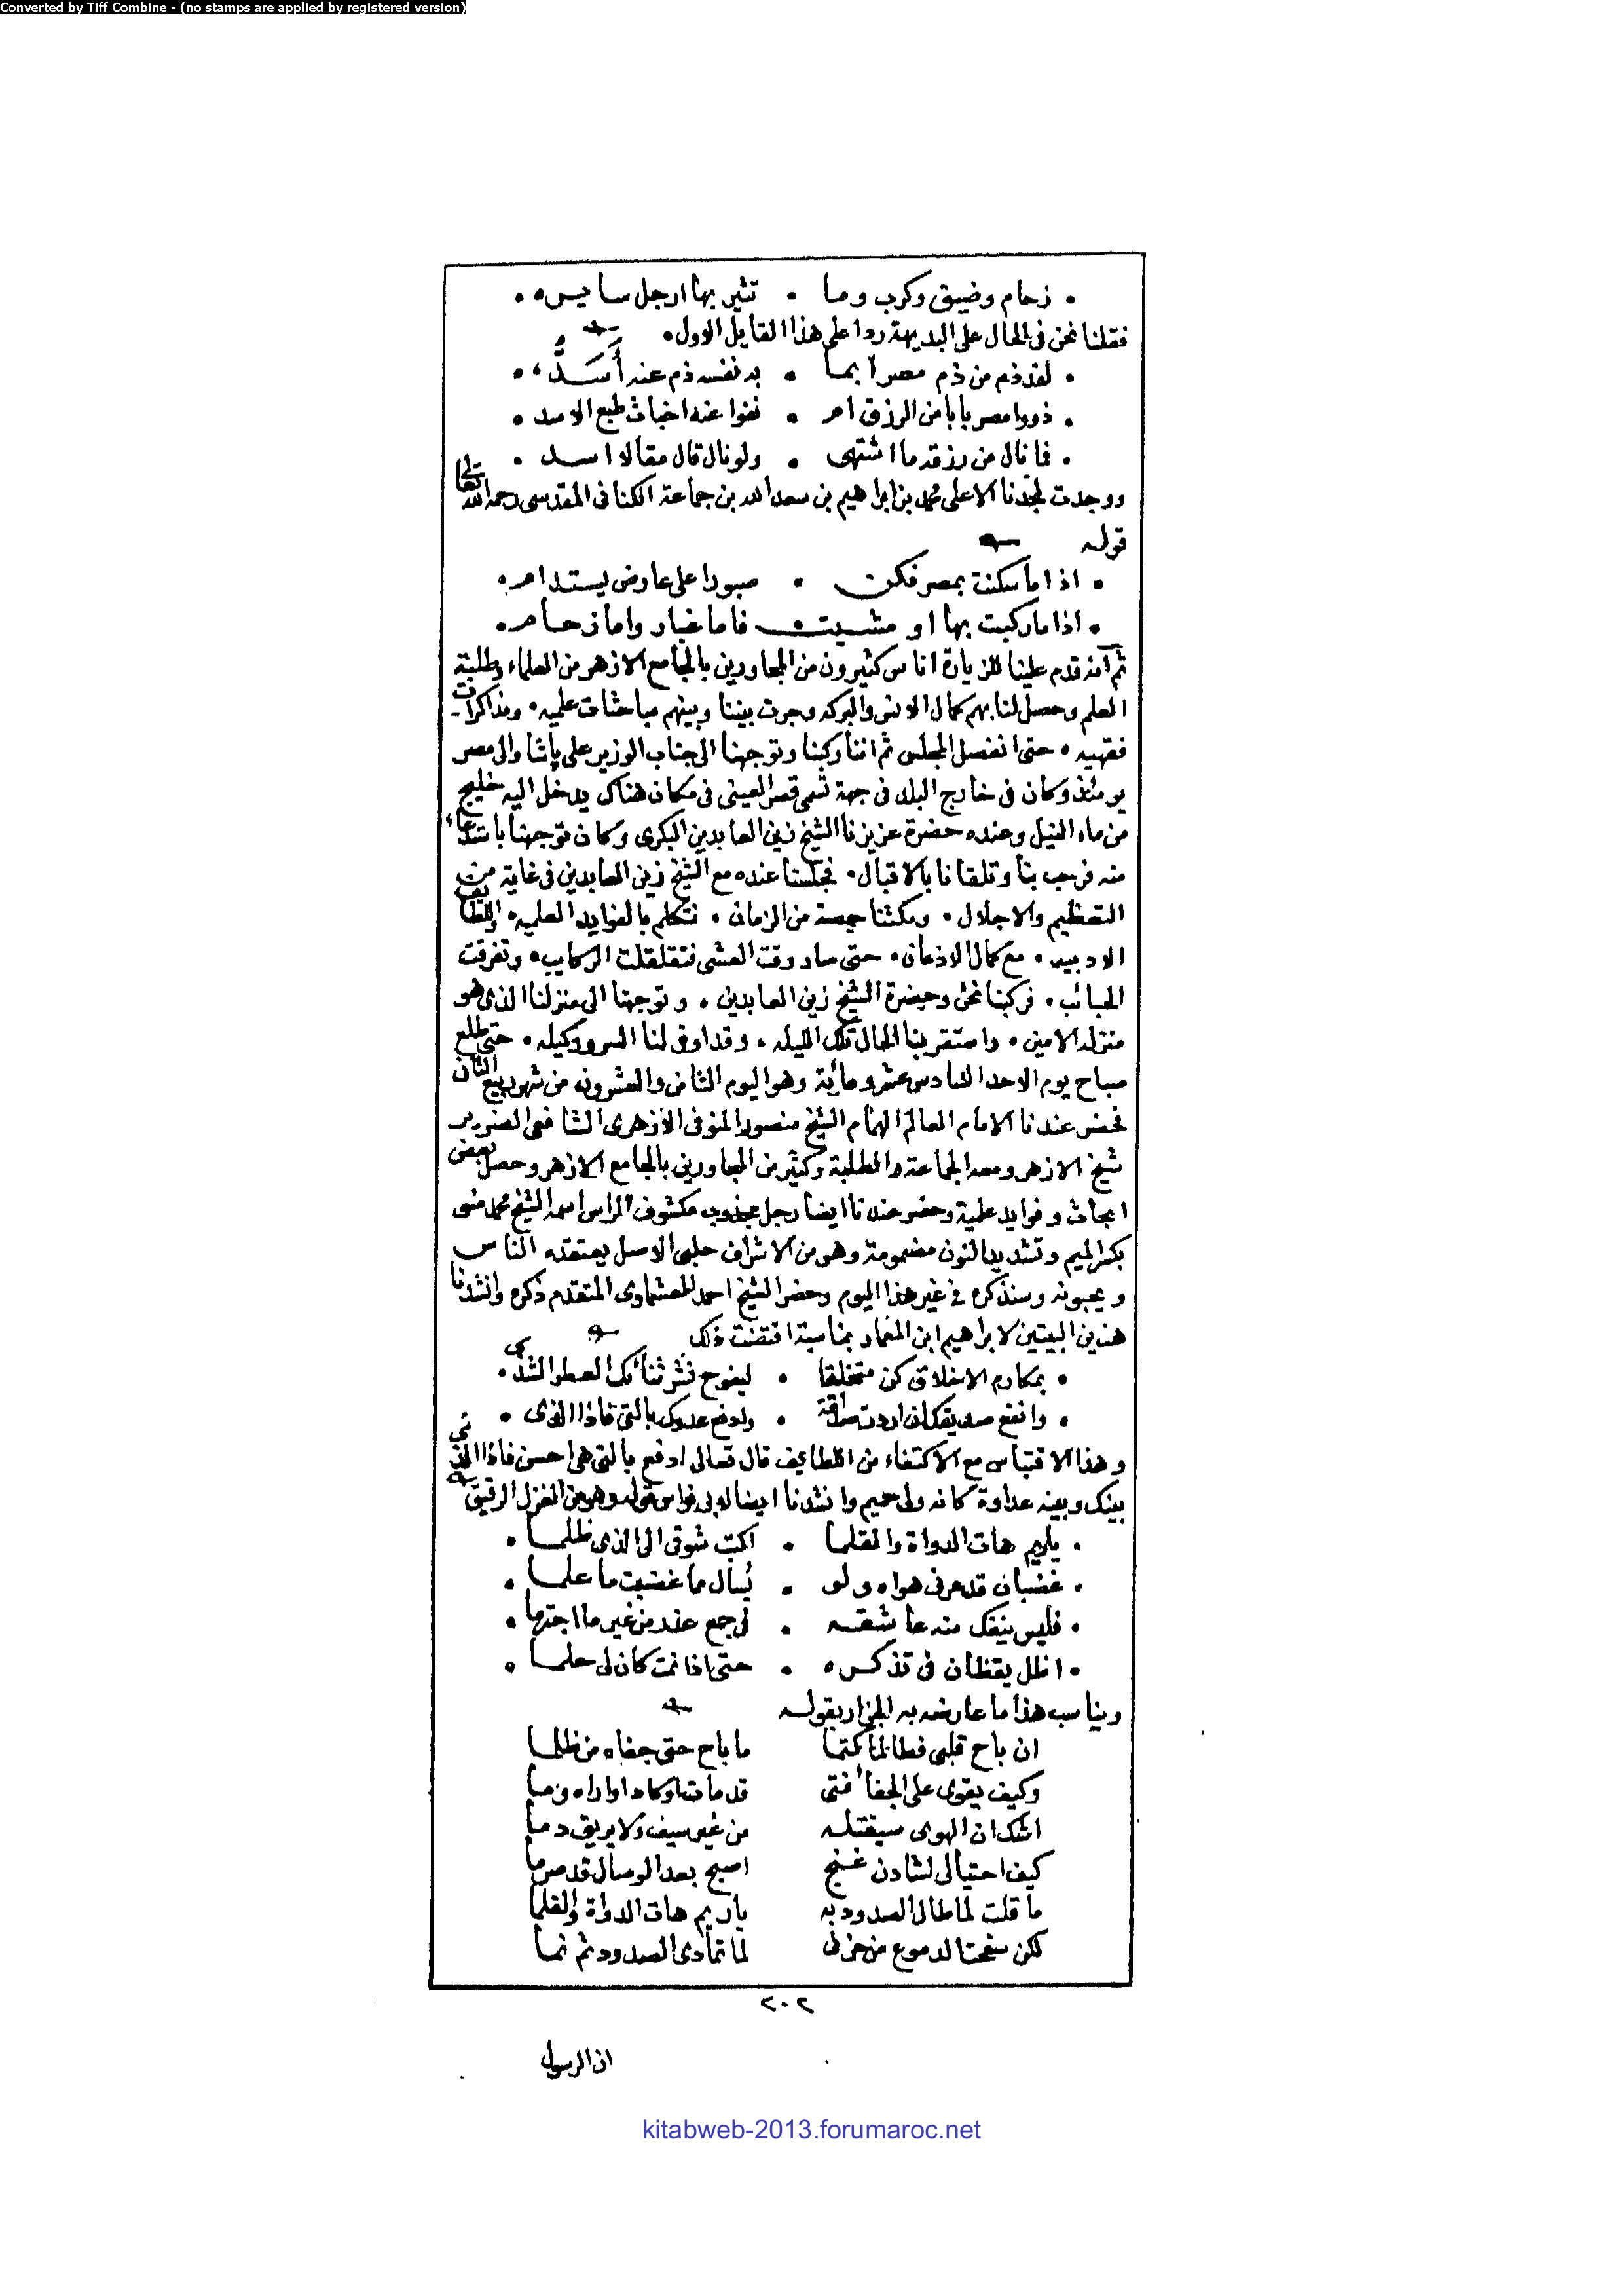 Converted by Tiff Combine - (no stamps are applied by registered version)
• زحام وضيق وكرب وما • تثير بها ارجل سايسه •
فقلنا نحن فى الحال على البديهة ردا على هذا القايل الاول •
• لقد ذم من ذم مصرا بما • به نفسه ذم عند أَسَدّ •
• ذووا مصر بابا من الرزق ام • نفوا عنه اخباث طبع الاسد •
• فما نال من رزقه ما اشتهى • ولو نال قال مقالا اسد •
ووجدت لجدنا الاعلى محمد بن ابراهيم بن سعد الله بن جماعة الكنانى المقدسى رحمه الله تعالى
قوله
• اذا ما سكنت بمصر فكن • صبورا على عارض يستدام •
• اذا ما ركبت بها او مشيت • فاما غبار واما زحام •
ثم انه قدم علينا للزيارة اناس كثيرون من المجاورين بالجامع الازهر من العلماء وطلبة
العلم وحصل لنا بهم كمال الانس والبركه وجرت بيننا وبينهم مباحثات علميه • ومذاكرات
فقهيه • حتى انفصل المجلس ثم اننا ركبنا وتوجهنا الى جناب الوزير على پاشا والى مصر
يومئذ وكان فى خارج البلد فى جهة تسمى قصر العينى فى مكان هناك يدخل اليه خليج
من ماء النيل وعنده حضرة عزيزنا الشيخ زين العابدين البكرى وكان توجهنا باستدعاء
منه فرحب بنا وتلقانا بالاقبال • فجلسنا عنده مع الشيخ زين العابدين فى غاية من
التعظيم والاجلال • ومكثنا حصة من الزمان • نتكلم بالفوايد العلميه • واللطايف
الادبيه • مع كمال الاذعان • حتى صار وقت العشى فتقلقلت الركايب • وتفرقت
الجبائب • فركبنا نحن وحضرة الشيخ زين العابدين • وتوجهنا الى منزلنا الذى هو
منزله الامين • واستقر بنا الحال تلك الليله • وقد اوفى لنا السرور كيله • حتى طلع
صباح يوم الاحد السادس عشر ومائة وهو اليوم الثامن والعشرون من شهر ربيع الثانى
فحضر عندنا الامام العالم الهمام الشيخ منصور المنوفى الازهرى الشافعى الضرير
شيخ الازهر ومعه الجماعة والطلبة وكثير من المجاورين بالجامع الازهر وحصل بعض
ابحاث وفوايد علمية وحضر عندنا ايضا رجل مجذوب مكشوف الراس اسمه الشيخ محمد منو
بكسر الميم وتشديد النون مضمومة وهو من الاشراف حلبى الاصل يعتقده الناس
ويحبونه وسنذكره فى غير هذا اليوم وحضر الشيخ احمد العشماوى المتقدم ذكره وانشدنا
هذين البيتين لابراهيم ابن المعمار بمناسبة اقتضت ذلك
• بمكارم الاخلاق كن متخلقا • ليفوح نشر ثنائك العطر الشذى •
• وانفع صديقك ان اردت صداقة • وادفع عدوك بالتى فاذا الذى •
وهذا الاقتباس مع الاكتفاء من اللطايف قال تعالى ادفع بالتى هى احسن فاذا الذى
بينك وبينه عداوة كانه ولى حميم وانشدنا ايضا لابى نواس قوله وهو من الغزل الرقيق
• ياريم هات الدواة والقلما • اكتب شوقى الى الذى ظلما •
• غضبان قد عزنى هواه ولو • يُسال مما غضبت ما علما •
• فليس ينفك منه عاشقه • فى جمع عذر من غير ما اجترما •
• اظل يقظان فى تذكره • حتى اذا نمت كان لى حلما •
ويناسب هذا ما عارضه به الجزار بقوله
ان باح قلبى فطالما كتما ما باح حتى جفاه من ظلما
وكيف يقوى على الجفاء فتى قد مات او كاد
اشك ان الهوى سيقتله من غير سيف ولا يريق دما
كيف احتيالى لشادن غنج اصبح بعد الوصال قد صرما
ما قلت لما طال الصدود به ياريم هات الدواة والقلما
لكن سفحت الدموع من حزنى لما تمادى الصدود ثم نما
٢٠٢
ان الرسول
kitabweb-2013.forumaroc.net